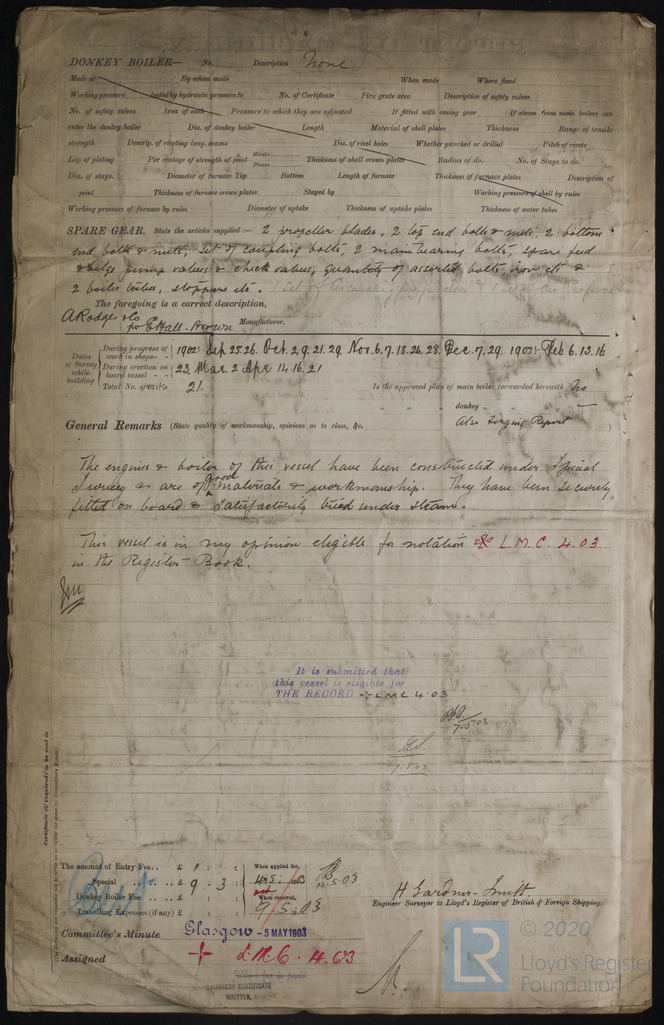 DONKEY BOILER— No. Description None
Made at By whom made When made Where fixed
Working pressure tested by hydraulic pressure to No. of Certificate Fire grate area Description of safety valves
No. of safety valves Area of each Pressure to which they are adjusted If fitted with easing gear If steam from main boilers can
enter the donkey boiler Dia. of donkey boiler Length Material of shell plates Thickness Range of tensile
strength Descrip. of riveting long. seams Dia. of rivet holes Whether punched or drilled Pitch of rivets
Lap of plating Per centage of strength of joint Rivets Plates Thickness of shell crown plates Radius of do. No. of Stays to do.
Dia. of stays. Diameter of furnace Top Bottom Length of furnace Thickness of furnace plates Description of
joint Thickness of furnace crown plates Stayed by Working pressure of shell by rules
Working pressure of furnace by rules Diameter of uptake Thickness of uptake plates Thickness of water tubes
SPARE GEAR. State the articles supplied:— 2 propeller blades, 2 top end bolts & nuts, 2 bottom
end bolts & nuts, set of coupling bolts, 2 main bearing bolts, spare feed
& bilge pump valves & check valves, quantity of assorted bolts, iron etc &
2 boiler tubes, stoppers etc.
The foregoing is a correct description,
A Rodger & Co
pr E Hall-Brown Manufacturer.
Dates of Survey while building
During progress of work in shops - - 1902: Sep 25 26. Oct. 2 9. 21. 29. Nov. 6. 7. 18. 24. 28. Dec. 7. 29. 1903: Feb 6. 13. 16
During erection on board vessel - - 23. Mar. 2 Apr 14. 16. 21
Total No. of visits 21.
Is the approved plan of main boiler forwarded herewith No
" " donkey " "
Also Forging Report
General Remarks (State quality of workmanship, opinions as to class, &c.
The engines & boiler of this vessel have been constructed under Special
Survey & are of good materials & workmanship. They have been securely
fitted on board & satisfactorily tried under steam.
This vessel is in my opinion eligible for notation ✠ L.M.C. 4.03
in the Register Book.
It is submitted that
this vessel is eligible for
THE RECORD + LMC 4.03
7.5.03
7.5.03
Certificate (if required) to be sent to
The amount of Entry Fee.. £ 1 : : When applied for,
Special .. .. £ 9 . 3 : 4.5.03
Donkey Boiler Fee £ : : When received,
Travelling Expenses (if any) £ : : 9.5.03
12.5.03
H Gardner-Smith
Engineer Surveyor to Lloyd's Register of British & Foreign Shipping.
Committee's Minute Glasgow - 5 MAY 1903
Assigned + L.M.C. 4.03
MACHINERY CERTIFICATE
WRITTEN.
LR
© 2020
Lloyd's Register
Foundation